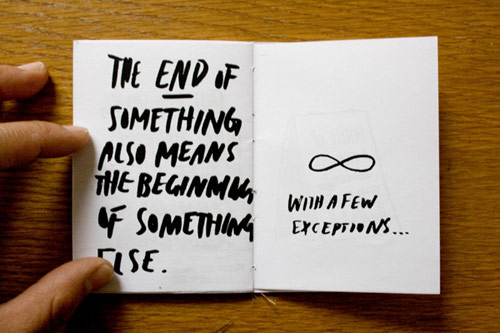 THE END OF
SOMETHING
ALSO MEANS
THE BEGINNING
OF SOMETHING
ELSE.
∞
WITH A FEW
EXCEPTIONS...